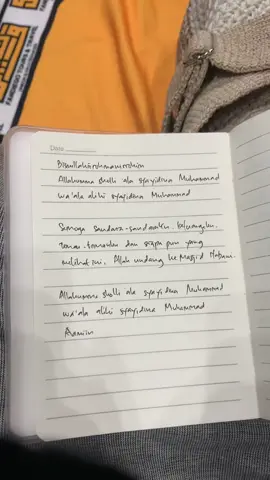 Date
Bismillahirrohmanirrohim
Allahumma sholli ala syayidina Muhammad
wa'ala alihi syayidina Muhammad
Semoga saudara-saudaraku, keluargaku,
teman-temanku dan siapa pun yang
melihat ini, Allah undang ke Masjid Haram.
Allahumma sholli ala syayidina Muhammad
wa'ala alihi syayidina Muhammad
Aamiin